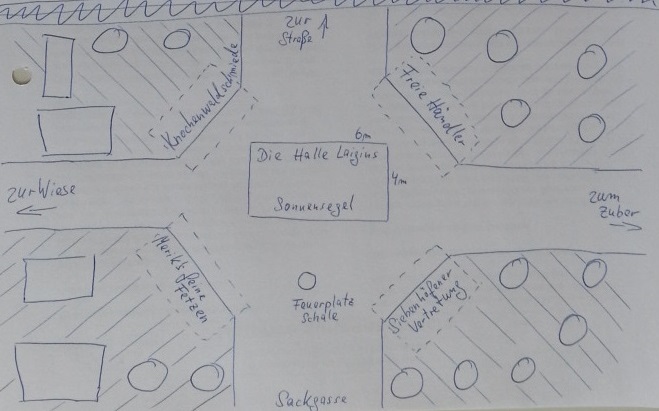 zur
Straße
Knochenwaldschmiede
Freie Händler
6m
Die Halle Laigins
4m
Sonnensegel
zur Wiese
zum
Zuber
Marik's feine
Fetzen
Feuerplatz
Schale
Siebenhöfener
Vertretung
Sackgasse